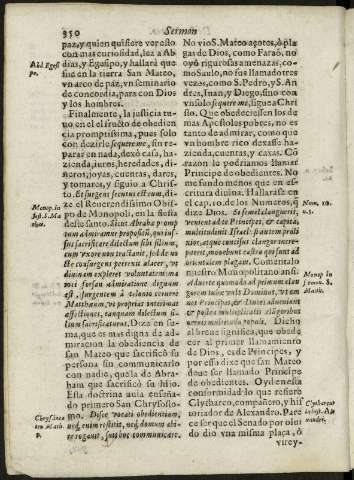 350
Sermon
paz, y quien quisiere ver esto
con mas curiosidad, lea a Ab
dias, y Egesipo, y hallarà que
fue en la tierra San Mateo,
vn arco de paz, vn seminario
de concordia, para con Dios
y los hombres.
Finalmente, la justicia tu
uo en el el fructo de obedien
cia promptissima, pues solo
con dezirle sequere me, sin re
parar en nada, dexò casa, ha-
zienda, juros, heredades, di-
ñeros, joyas, cuentas, dares,
y tomares, y siguio a Chris
to. Et surgens secutus est eum, di-
ze el Reuerendissimo Obis
po de Monopoli, en la fiesta
deste santo. Sicut Abraha promp
tum admiramur propositũ, qui ius-
sus sacrificare dilectum sibi filium,
cum vxore non tractauit, sed de no
cte consurgens
diuinam expleret voluntatem: ita
mei forsan admiratione dignum
est, surgentem à telonio cernere
Matthæum, vt proprias internas
affectiones, tanquam dilectum fi-
lium sacrificaturus. Dize en su-
ma, que es mas digna de ad-
miracion la obediencia de
san Mateo que sacrificò su
persona sin comunicarlo
con nadie, que la de Abra-
ham que sacrificò su hijo.
Esta doctrina auia enseña-
do primero San Chrysosto-
mo. Disce vocati obedientiam,
neq; enim restitit, neq; domum abi-
re rogauit, suis hoc communicare.
Abd. Egesi
po.
Monop. in
fest. S. Ma
theo.
Chrys. in ca
tea Math.
9.
No vio S. Mateo açotes, ò pla
gas de Dios, como Faraò, no
oyò rigurosas amenazas, co-
mo Saulo, no fue llamado tres
vezes, como S. Pedro, y S. An
drea, Iuan, y Diego, sino con
vn solo sequere me, sigue a Chris
to. Que obedeciessen los de
mas Apostoles pobres, no es
tanto de admirar, como que
vn hombre rico dexasse ha-
zienda, cuentas, y caxas. Cõ
razon le podriamos llamar
Principe de obedientes. No
me fundo menos que en es-
critura diuina. Hallarasla en
el cap. 10. de los Numeros, q̃
dize Dios. Si semel clangueris,
venient ad te Principes, & capita
multitudinis Israel: si autem proli
xior, atque concisus clangor incre-
puerit, mouebunt castra qui sunt ad
orientalem plagam. Comentalo
nuestro Monopolitano ansi.
Aduerte quomodo ad primum clan
gorem huius vocis Dominus, vt om
nes Principes, & Duces adueniant
& postea multiplicatis clangoribus
vniuersa multitudo populi. Dicho
al breue significa, que obede
cer al primer llamamiento
de Dios, es de Principes, y
por essa dize que san Mateo
deue ser llamado Principe
de obedientes. Oyd en esta
conformidad lo que refiere
Clytharco, compañero, y his
toriador de Alexandro. Pare
ce ser que el Senado por olui
do dio vna misma plaça, ò
virey-
Num. 10.
v. 3.
Monop in
Math.
in hist. Ale
xander.